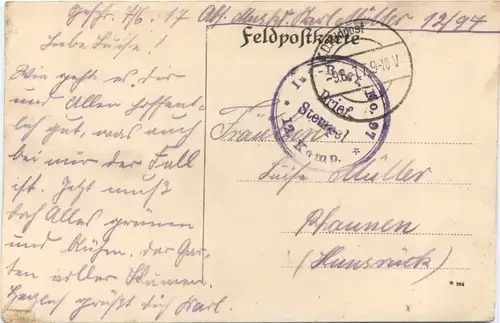 Geschr. 7/6. 17 Abs. Musk. Karl Müller 12/97
Feldpostkarte
Liebe Luise!
Wie geht es dir
und Allen hoffent-
lich gut, was auch
bei mir der Fall
ist. Jetzt muß
doch Alles grünen
und blühen. der Gar-
ten voller Blumen.
Herzlich grüßt dich Karl.
K.D. Feldpost
9-10 V
I.-R. No. 97
Brief
Stempel
12. Komp.
Fräulein
Luise Müller
Rhaunen
(Hunsrück)